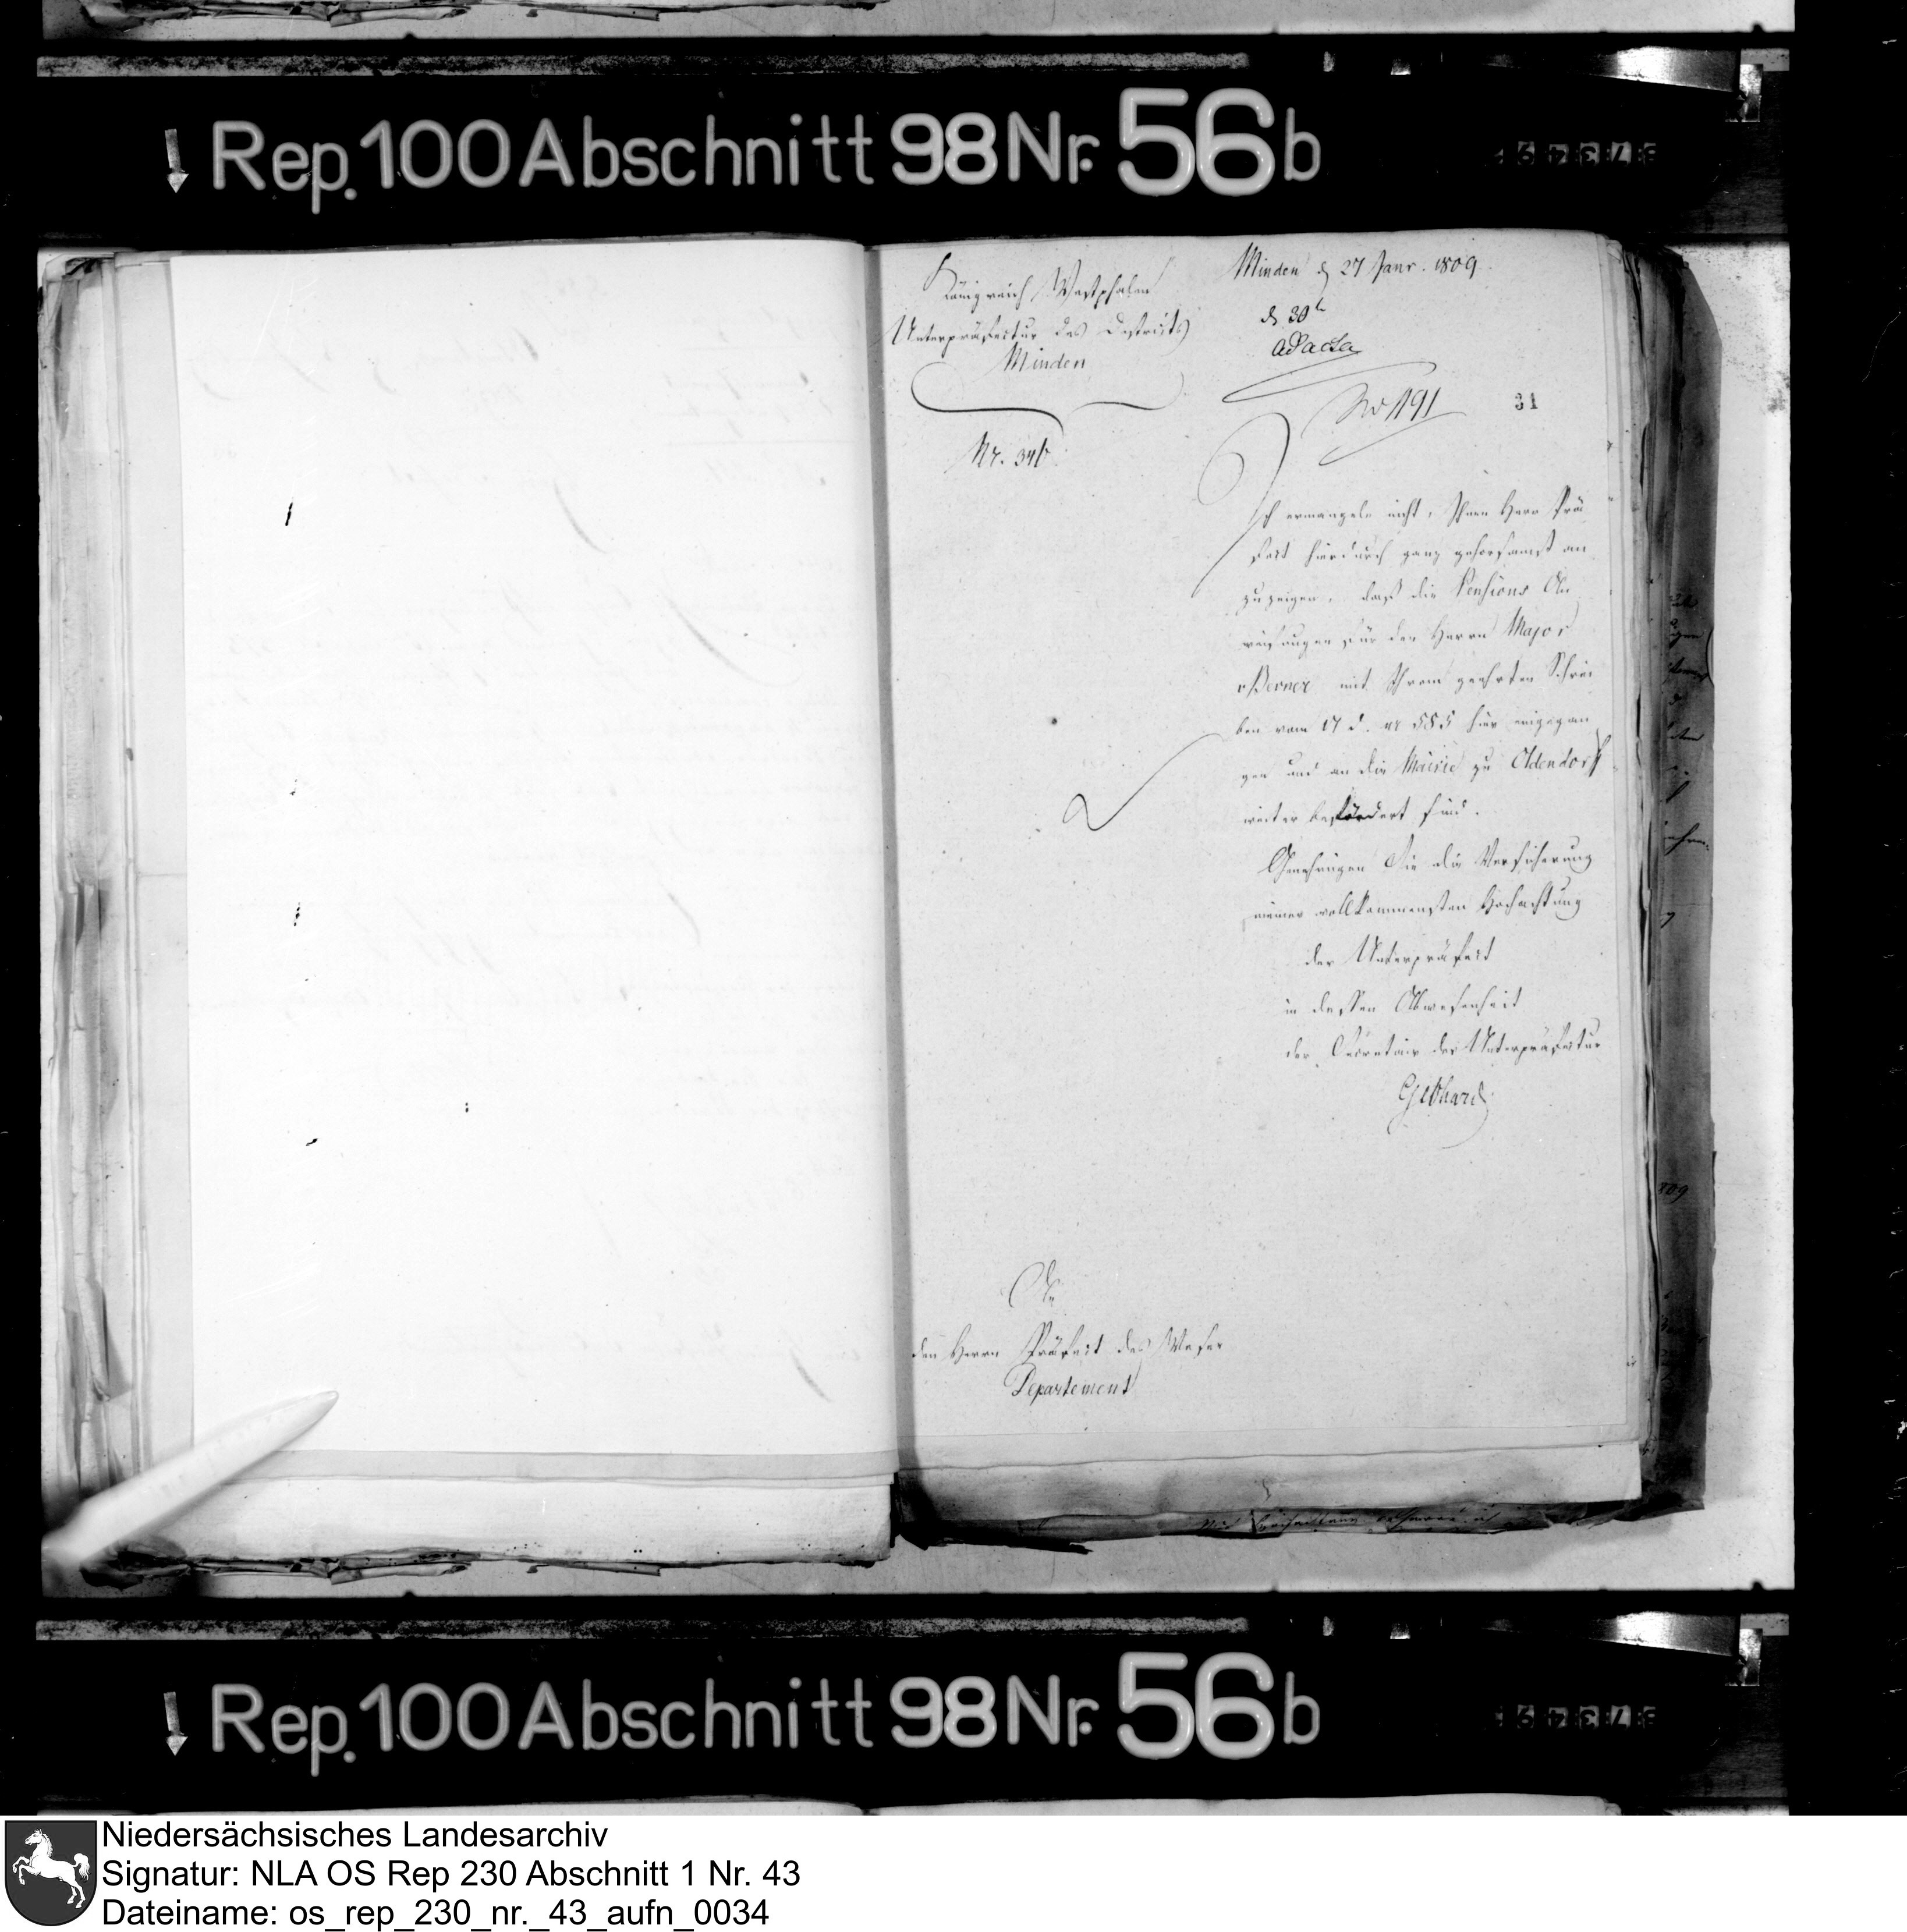 Rep. 100 Abschnitt 98 Nr. 56 b
Königreich Westphalen
Unterpräfectur des Districts
Minden
Nr. 341
Minden d 27 Janr. 1809.
d 30t
ad acta
No 1191
31
Ich ermangele nicht, Ihnen Herr Prä
fect hierdurch ganz gehorsamst an
zuzeigen, daß die Pensions An
weisungen für den Herrn Major
v Berner mit Ihrem geehrten Schrei
ben vom 17 d. nr 555 hier eingegan
gen und an die Mairie zu Oldendorf
weiter befördert sind.
Genehmigen Sie die Versicherung
meiner vollkommensten Hochachtung
der Unterpräfect
in dessen Abwesenheit
der Secretair der Unterpräfectur
Gebhard
An
den Herrn Präfect des Weser
Departement
Rep. 100 Abschnitt 98 Nr. 56 b
Niedersächsisches Landesarchiv
Signatur: NLA OS Rep 230 Abschnitt 1 Nr. 43
Dateiname: os_rep_230_nr._43_aufn_0034